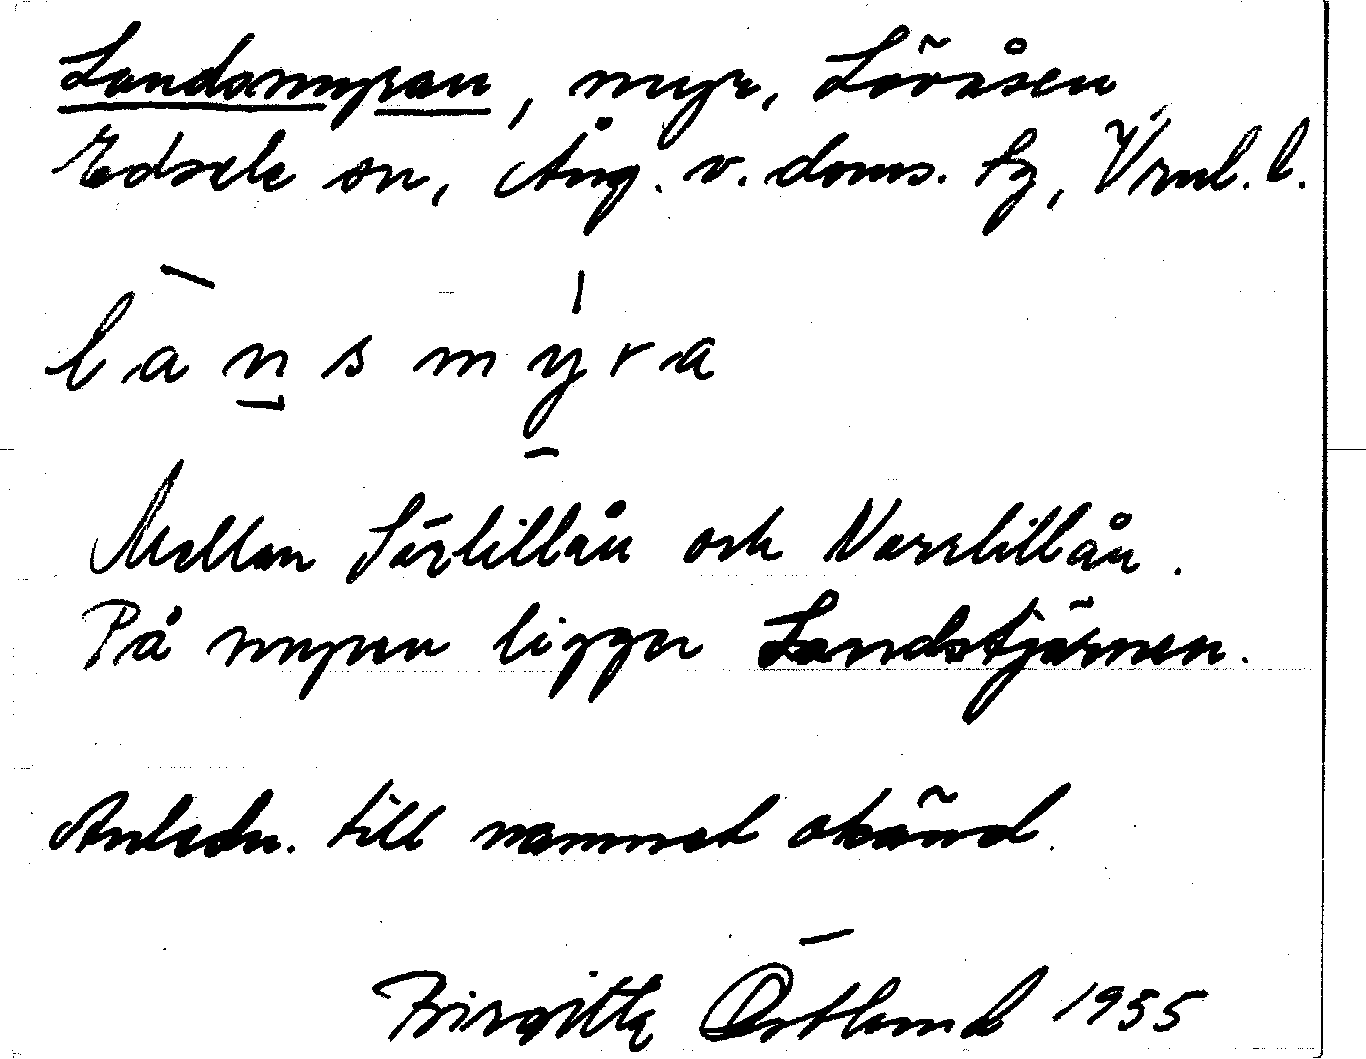 Landsmyran, myr, Lövåsen
Edsele sn, Ång. v. doms. tg, Vrnl. l.
lan̲smyra
Mellan Sörlillån och Norrlillån.
På myren ligger Landstjärnen.
Anledn. till namnet okänd.
Birgitta Östlund 1955